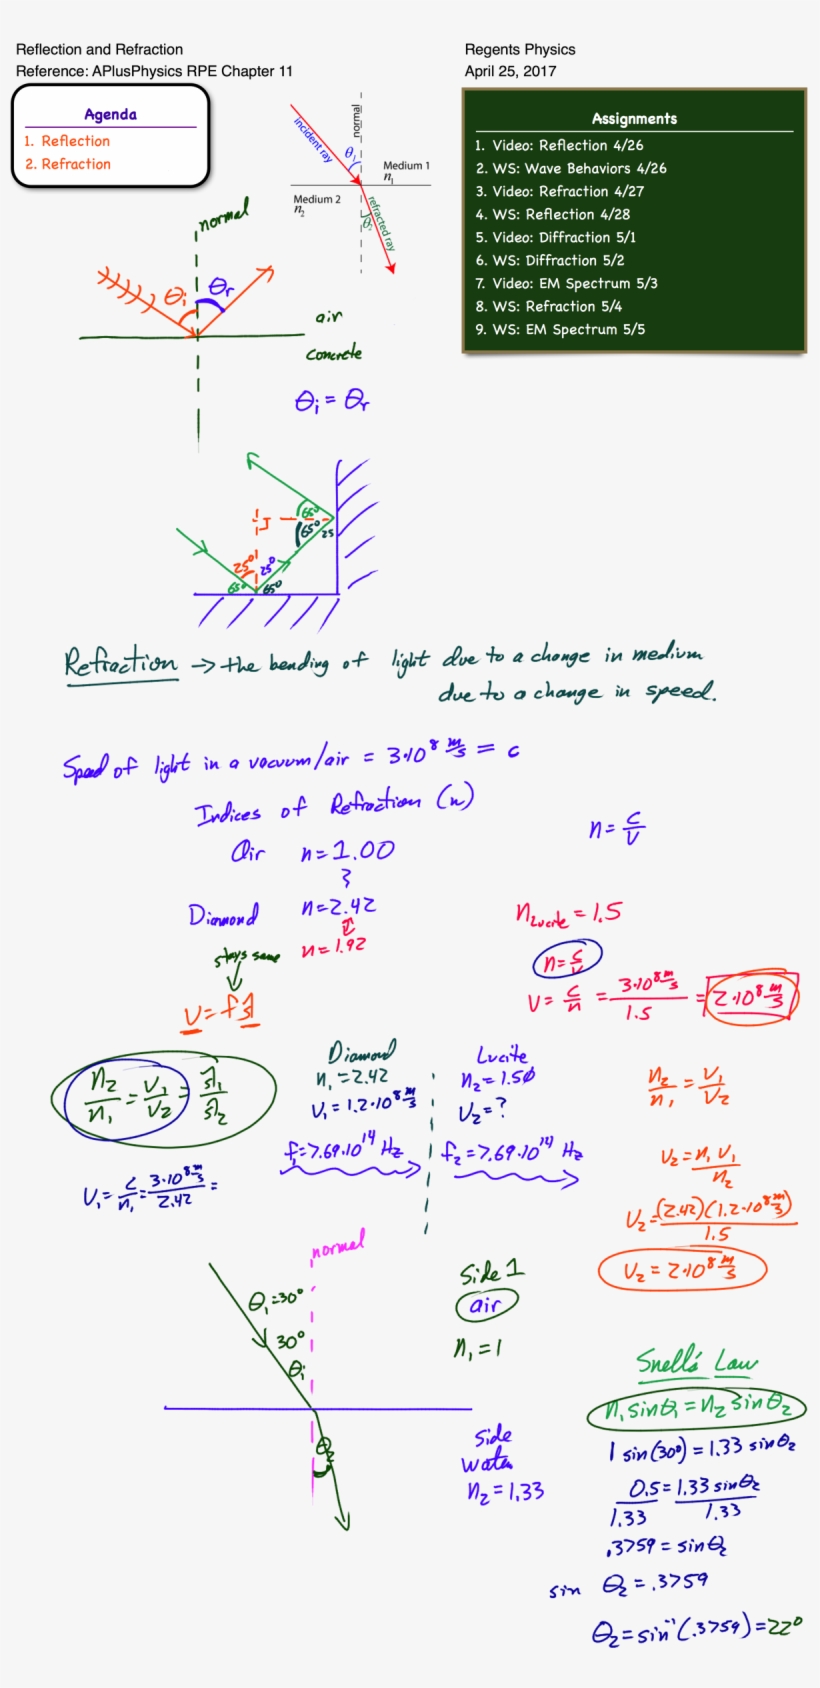 Reflection and Refraction
Reference: APlusPhysics RPE Chapter 11
Regents Physics
April 25, 2017
Agenda
1. Reflection
2. Refraction
Assignments
1. Video: Reflection 4/26
2. WS: Wave Behaviors 4/26
3. Video: Refraction 4/27
4. WS: Reflection 4/28
5. Video: Diffraction 5/1
6. WS: Diffraction 5/2
7. Video: EM Spectrum 5/3
8. WS: Refraction 5/4
9. WS: EM Spectrum 5/5
incident ray
normal
θ₁
Medium 1
n₁
Medium 2
n₂
θ₂
refracted ray
normal
θi θr
air
concrete
θi = θr
65°
65° 25
25° 25°
65° 65°
Refraction → the bending of light due to a change in medium
due to a change in speed.
Speed of light in a vacuum/air = 3·10⁸ m/s = c
Indices of Refraction (n)
n = c/v
Air n = 1.00
Diamond n = 2.42
n = 1.92
stays same
v = fλ
nLucite = 1.5
n = c/v
v = c/n = 3·10⁸ m/s / 1.5 = 2·10⁸ m/s
n₂/n₁ = v₁/v₂ = λ₁/λ₂
v₁ = c/n₁ = 3·10⁸ m/s / 2.42 =
Diamond
n₁ = 2.42
v₁ = 1.2·10⁸ m/s
f₁ = 7.69·10¹⁴ Hz
Lucite
n₂ = 1.50
v₂ = ?
f₂ = 7.69·10¹⁴ Hz
n₂/n₁ = v₁/v₂
v₂ = n₁v₁/n₂
v₂ = (2.42)(1.2·10⁸ m/s)/1.5
v₂ = 2·10⁸ m/s
normal
θ₁ = 30°
30°
θi
θ₂
Side 1
air
n₁ = 1
Side
water
n₂ = 1.33
Snell's Law
n₁ sinθ₁ = n₂ sinθ₂
1 sin(30°) = 1.33 sinθ₂
0.5/1.33 = 1.33 sinθ₂/1.33
.3759 = sinθ₂
sin θ₂ = .3759
θ₂ = sin⁻¹(.3759) = 22°